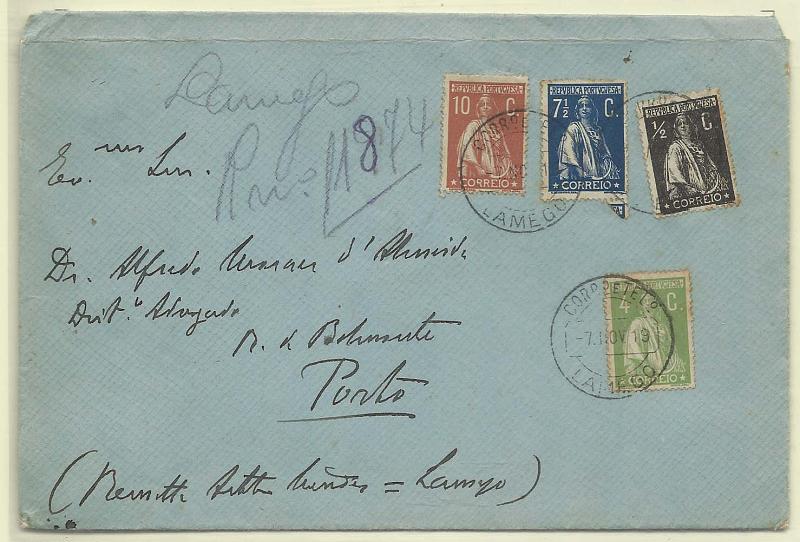 Lamego
R nº 11874
REPUBLICA PORTUGUESA
10 C.
CORREIO
REPUBLICA PORTUGUESA
7½ C.
CORREIO
REPUBLICA PORTUGUESA
½ C.
CORREIO
LAMEGO
Exmo Snr.
Dr. Alfredo d'Almeida
Distº Advogado
R. de Belmonte
Porto
REPUBLICA PORTUGUESA
4 C.
CORREIO
CORRº E TELº
-7.NOV 19
LAMEGO
(Remitte Mendes = Lamego)